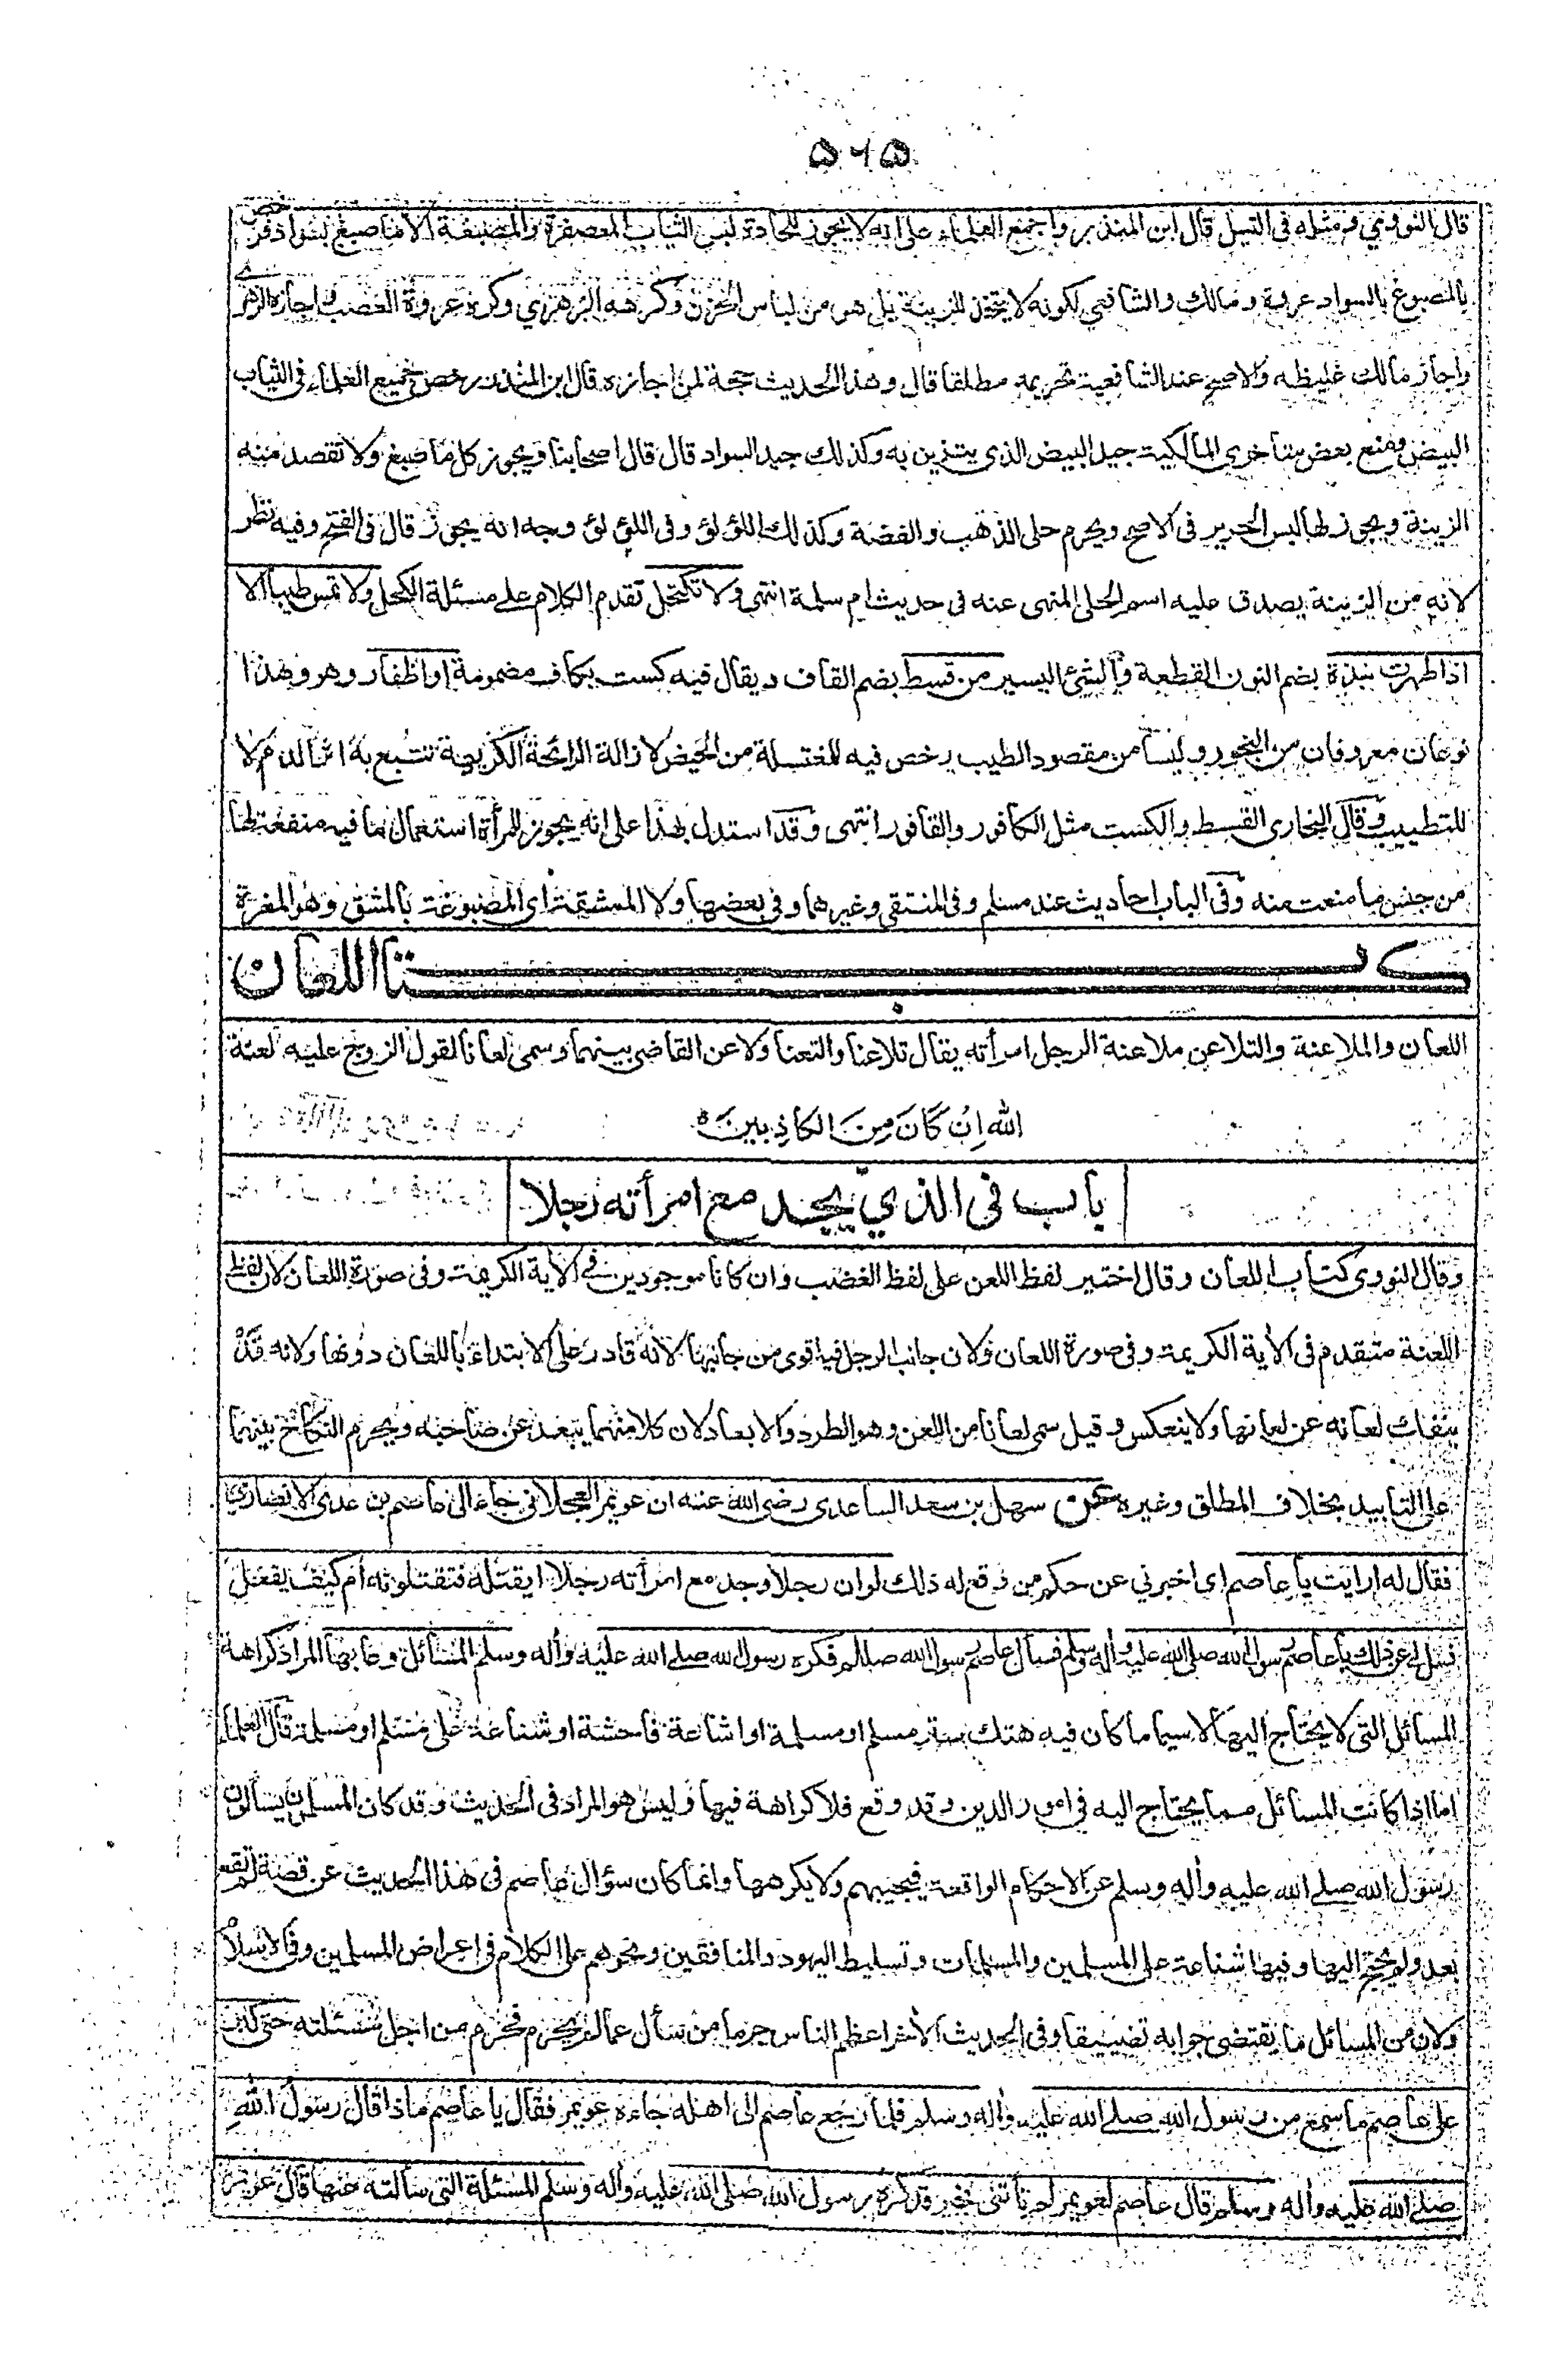 ٥٦٥
قال النووي ومثله في النيل قال ابن المنذر واجمع العلماء على انه لا يجوز للحادة لبس الثياب المعصفرة والمصبغة الا ما صبغ بسواد فرخص
بالمصبوغ بالسواد عروة ومالك والشافعي لكونه لا يتخذ للزينة بل هو من لباس الحزن وكرهه الزهري وكره عروة العصب واجازه الزهري
واجاز مالك غليظه والاصح عند الشافعية تحريمه مطلقا قال وهذا الحديث حجة لمن اجازه قال ابن المنذر رخص جميع العلماء في الثياب
البيض ومنع بعض متأخري المالكية جيد البيض الذي يتزين به وكذلك جيد السواد قال قال اصحابنا ويجوز كل ما صبغ ولا تقصد منه
الزينة ويجوز لها لبس الحرير في الاصح ويحرم حلي الذهب والفضة وكذلك اللؤلؤ وفي اللؤلؤ وجه انه يجوز قال في الفتح وفيه نظر
لانه من الزينة يصدق عليه اسم الحلي المنهى عنه في حديث ام سلمة انتهى ولا تكتحل تقدم الكلام على مسئلة الكحل ولا تمس طيبا الا
اذا طهرت نبذة بضم النون القطعة والشئ اليسير من قسط بضم القاف ويقال فيه كست بكاف مضمومة او اظفار وهو وهذا
نوعان معروفان من البخور وليسا من مقصود الطيب رخص فيه للمغتسلة من الحيض لازالة الرائحة الكريهة تتبع به اثر الدم لا
للتطييب وقال البخاري القسط والكست مثل الكافور والقافور انتهى وقد استدل بهذا على انه يجوز للمرأة استعمال ما فيه منفعة لها
من جنس ما منعت منه وفي الباب احاديث عند مسلم وفي المنتقى وغيرهما وفي بعضها ولا الممشقة اي المصبوغة بالمشق وهو المغرة
كتاب اللعان
اللعان والملاعنة والتلاعن ملاعنة الرجل امرأته يقال تلاعنا والتعنا ولاعن القاضي بينهما وسمي لعانا لقول الزوج عليه لعنة
الله اِنْ كَانَ مِنَ الكاذِبِينَ
باب في الذي يجد مع امرأته رجلا
وقال النووي كتاب اللعان وقال اختير لفظ اللعن على لفظ الغضب وان كانا موجودين في الاية الكريمة وفي صورة اللعان لان لفظ
اللعنة متقدم في الاية الكريمة وفي صورة اللعان ولان جانب الرجل فيه اقوى من جانبها لانه قادر على الابتداء باللعان دونها ولانه قد
ينفك لعانه عن لعانها ولا ينعكس وقيل سمي لعانا من اللعن وهو الطرد والابعاد لان كلا منهما يبعد عن صاحبه ويحرم النكاح بينهما
على التابيد بخلاف المطلق وغيره عن سهل بن سعد الساعدي رضي الله عنه ان عويمر العجلاني جاء الى عاصم بن عدي الانصاري
فقال له ارايت يا عاصم اي اخبرني عن حكم من وقع له ذلك لو ان رجلا وجد مع امرأته رجلا ايقتله فتقتلونه أم كيف يفعل
فسل لي عن ذلك يا عاصم رسول الله صلى الله عليه وأله وسلم فسأل عاصم رسول الله صللم فكره رسول الله صلى الله عليه وأله وسلم المسائل وعابها المراد كراهة
المسائل التي لا يحتاج اليها لا سيما ما كان فيه هتك ستر مسلم او مسلمة او اشاعة فاحشة او شناعة على مسلم او مسلمة قال العلماء
اما اذا كانت المسائل مما يحتاج اليه في امور الدين وقد وقع فلا كراهة فيها وليس هو المراد في الحديث وقد كان المسلمون يسألون
رسول الله صلى الله عليه وأله وسلم عن الاحكام الواقعة فيجيبهم ولا يكرهها وانما كان سؤال عاصم في هذا الحديث عن قصة لم تقع
بعد ولم يحتج اليها وفيها شناعة على المسلمين والمسلمات وتسليط اليهود والمنافقين ونحوهم على الكلام في اعراض المسلمين وفي الاسلام
ولان من المسائل ما يقتضي جوابه تضييقا وفي الحديث الأخر اعظم الناس جرما من سأل عما لم يحرم فحرم من اجل مسئلته حتى كبر
على عاصم ما سمع من رسول الله صلى الله عليه وأله وسلم فلما رجع عاصم الى اهله جاءه عويمر فقال يا عاصم ماذا قال رسول الله
صلى الله عليه وأله وسلم قال عاصم لعويمر لم تأتني بخير قد كره رسول الله صلى الله عليه وأله وسلم المسئلة التي سألته عنها قال عويمر